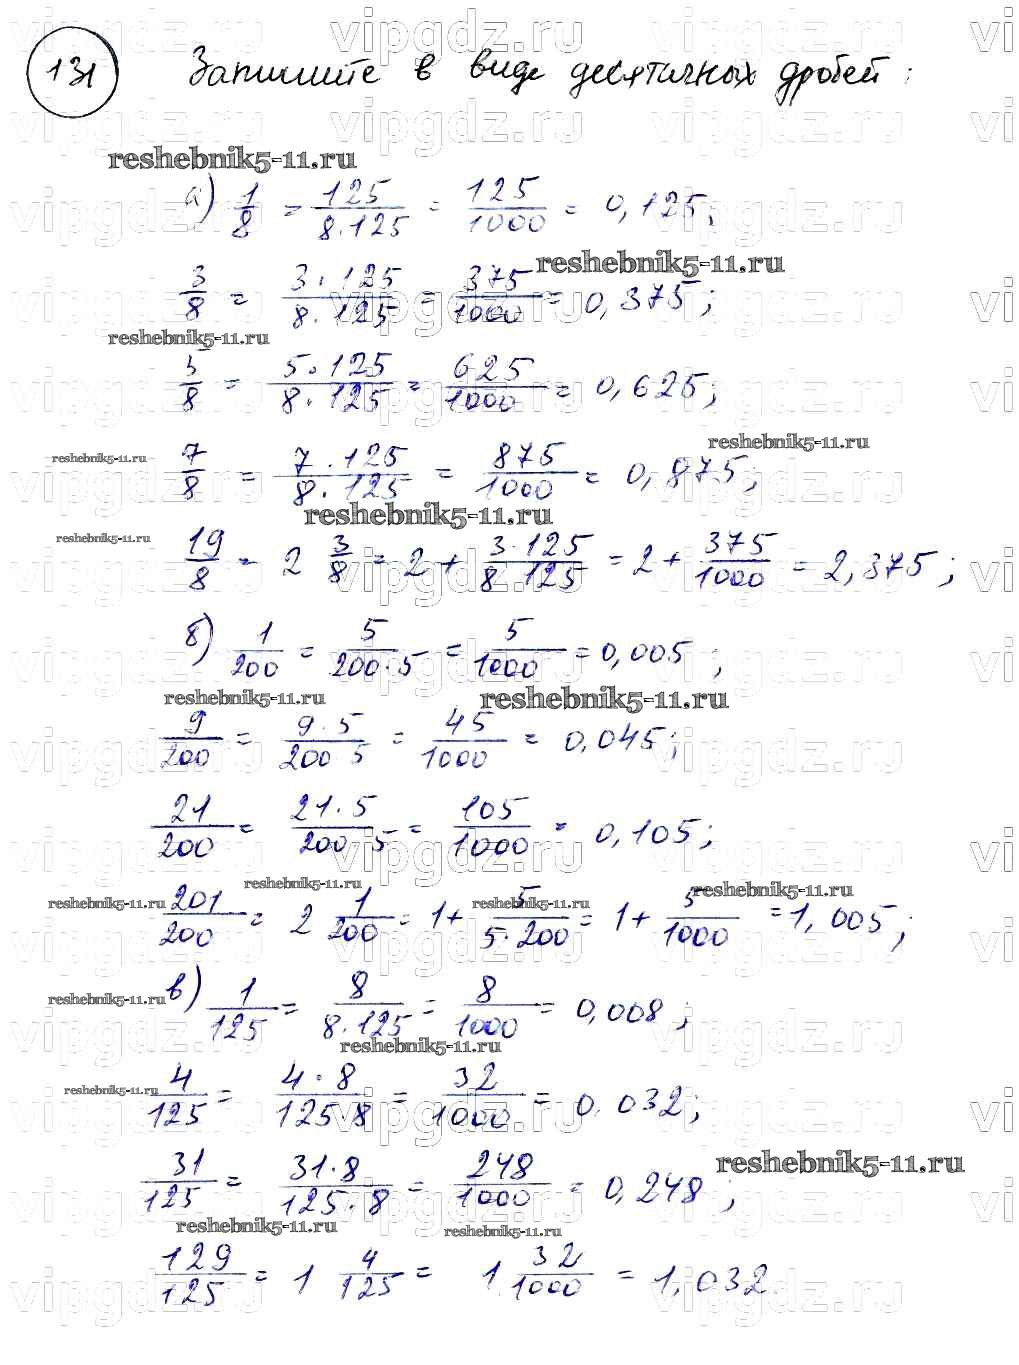 131 Запишите в виде десятичных дробей:
а) 1/8 = 125/8·125 = 125/1000 = 0,125;
3/8 = 3·125/8·125 = 375/1000 = 0,375;
5/8 = 5·125/8·125 = 625/1000 = 0,625;
7/8 = 7·125/8·125 = 875/1000 = 0,875;
19/8 = 2 3/8 = 2 + 3·125/8·125 = 2 + 375/1000 = 2,375;
б) 1/200 = 5/200·5 = 5/1000 = 0,005;
9/200 = 9·5/200·5 = 45/1000 = 0,045;
21/200 = 21·5/200·5 = 105/1000 = 0,105;
201/200 = 2 1/200 = 1 + 5/5·200 = 1 + 5/1000 = 1,005;
в) 1/125 = 8/8·125 = 8/1000 = 0,008;
4/125 = 4·8/125·8 = 32/1000 = 0,032;
31/125 = 31·8/125·8 = 248/1000 = 0,248;
129/125 = 1 4/125 = 1 32/1000 = 1,032.
vipgdz.ru
reshebnik5-11.ru